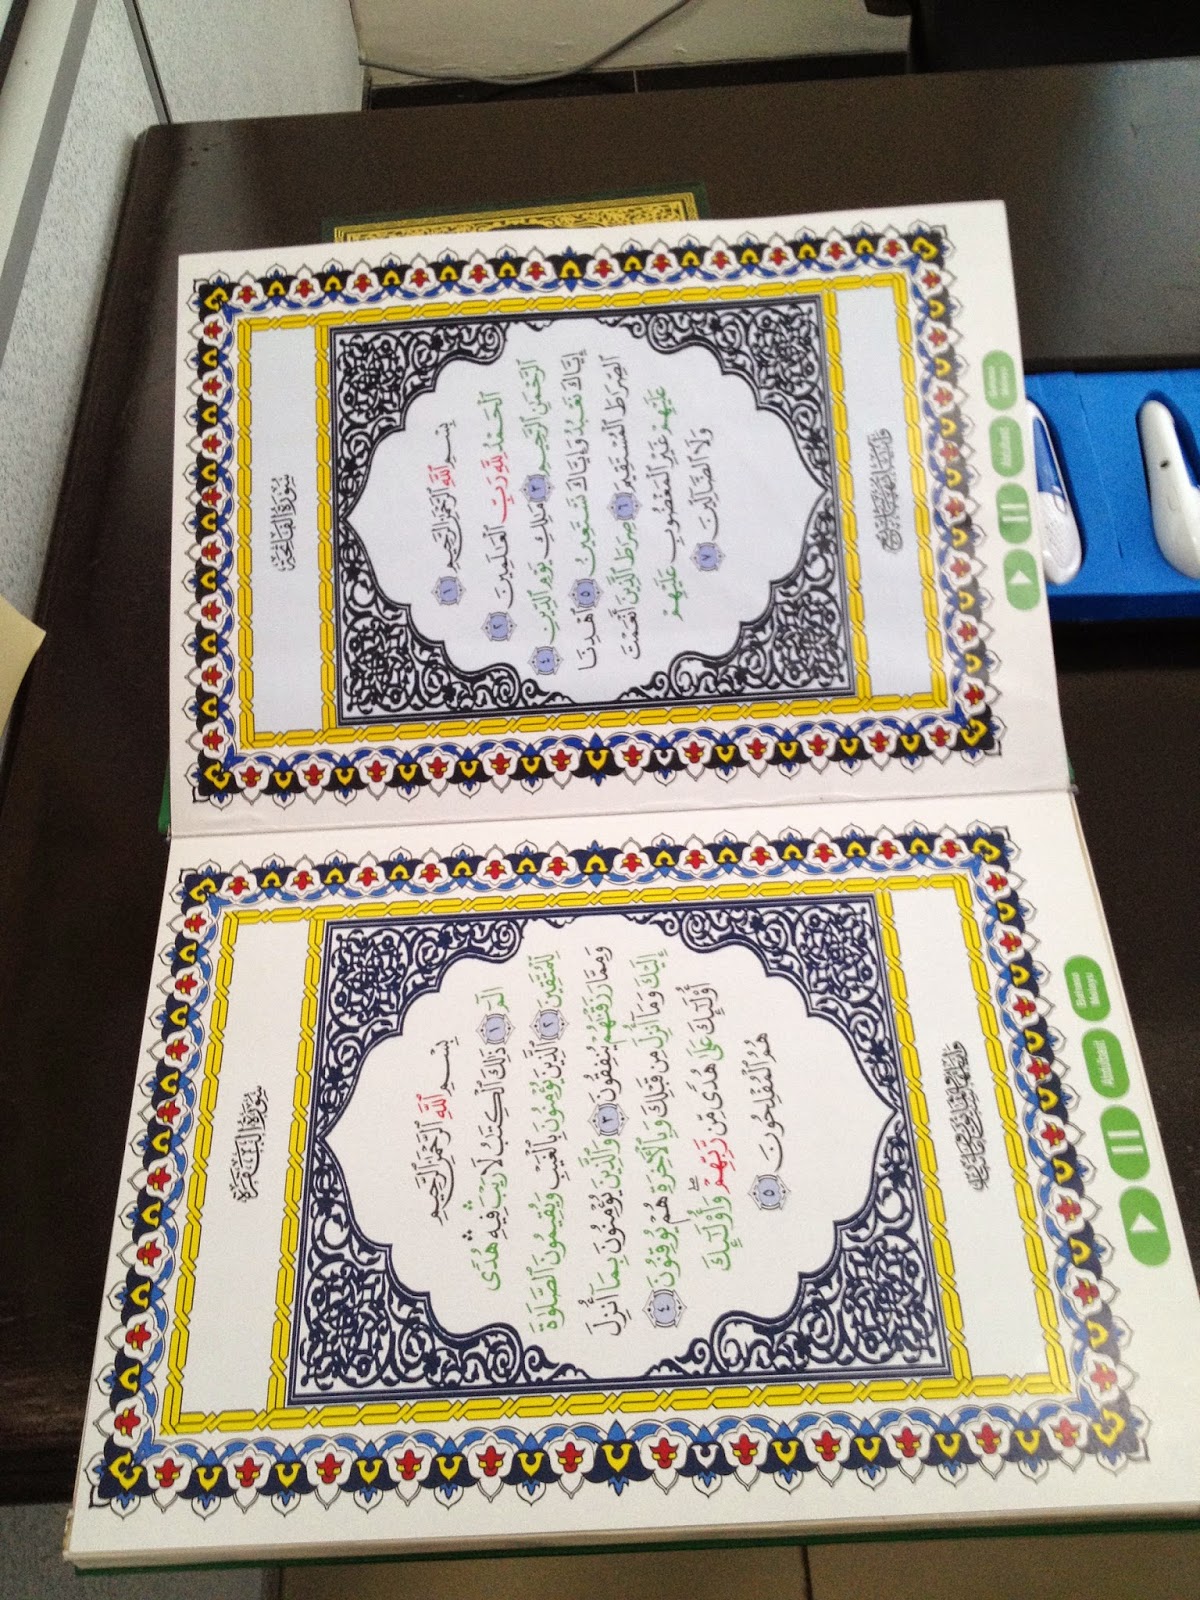 سُورَةُ الفَاتِحَة
بِسْمِ ٱللَّهِ ٱلرَّحْمَٰنِ ٱلرَّحِيمِ ١
ٱلْحَمْدُ لِلَّهِ رَبِّ ٱلْعَٰلَمِينَ ٢
ٱلرَّحْمَٰنِ ٱلرَّحِيمِ ٣ مَٰلِكِ يَوْمِ ٱلدِّينِ ٤
إِيَّاكَ نَعْبُدُ وَإِيَّاكَ نَسْتَعِينُ ٥ ٱهْدِنَا
ٱلصِّرَٰطَ ٱلْمُسْتَقِيمَ ٦ صِرَٰطَ ٱلَّذِينَ أَنْعَمْتَ
عَلَيْهِمْ غَيْرِ ٱلْمَغْضُوبِ عَلَيْهِمْ
وَلَا ٱلضَّآلِّينَ ٧
Bahasa Melayu
سُورَةُ البَقَرَة
بِسْمِ ٱللَّهِ ٱلرَّحْمَٰنِ ٱلرَّحِيمِ
الٓمٓ ١ ذَٰلِكَ ٱلْكِتَٰبُ لَا رَيْبَ ۛ فِيهِ ۛ هُدًى
لِّلْمُتَّقِينَ ٢ ٱلَّذِينَ يُؤْمِنُونَ بِٱلْغَيْبِ وَيُقِيمُونَ ٱلصَّلَوٰةَ
وَمِمَّا رَزَقْنَٰهُمْ يُنفِقُونَ ٣ وَٱلَّذِينَ يُؤْمِنُونَ بِمَآ أُنزِلَ
إِلَيْكَ وَمَآ أُنزِلَ مِن قَبْلِكَ وَبِٱلْءَاخِرَةِ هُمْ يُوقِنُونَ ٤
أُو۟لَٰٓئِكَ عَلَىٰ هُدًى مِّن رَّبِّهِمْ ۖ وَأُو۟لَٰٓئِكَ
هُمُ ٱلْمُفْلِحُونَ ٥
Abdulbasit
Bahasa Melayu